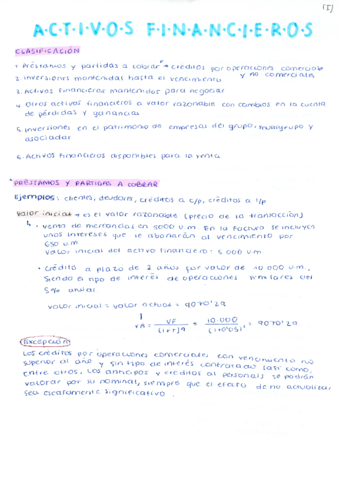 (5)
A·C·T·I·V·O·S F·I·N·A·N·C·I·E·R·O·S
CLASIFICACIÓN
1. Préstamos y partidas a cobrar → créditos por operaciones comerciales y no comerciales
2. inversiones mantenidas hasta el vencimiento
3. Activos financieros mantenidos para negociar
4. Otros activos financieros a valor razonable con cambios en la cuenta
de pérdidas y ganancias
5. Inversiones en el patrimonio de empresas del grupo, multigrupo y
asociadas
6. Activos financieros disponibles para la venta
PRÉSTAMOS Y PARTIDAS A COBRAR
Ejemplos: clientes, deudores, créditos a c/p, créditos a l/p
Valor inicial → es el valor razonable (precio de la transacción)
• venta de mercancías en 5000 u.m. En la factura se incluyen
unos intereses que se abonarán al vencimiento por
650 u.m
valor inicial del activo financiero: 5000 u.m
• Crédito a plazo de 2 años por valor de 10.000 u.m.,
siendo el tipo de interés de operaciones similares del
5% anual
valor inicial = valor actual = 9070'29
VA = VF / (1+r)^ = 10.000 / (1+0'05)² = 9070'29
Excepción
Los créditos por operaciones comerciales con vencimiento no
superior al año y sin tipo de interés contractual (así como,
entre otros, los anticipos y créditos al personal) se podrán
valorar por su nominal, siempre que el efecto de no actualizar
sea significativo.